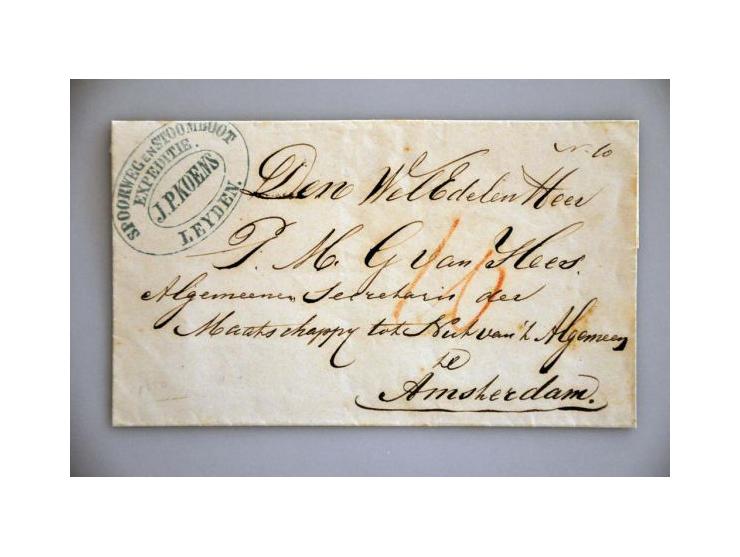 SPOORWEG EN STOOMBOOT
EXPEDITIE.
J.P. KOENS
LEYDEN.
Den WelEdelen Heer
P. M. G van Hees.
Algemeenen Secretaris der
Maatschappy tot Nut van 't Algemeen
te
Amsterdam.